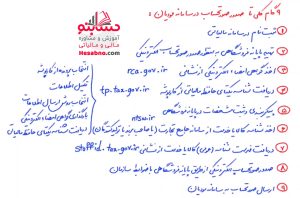 ۹ گام کلی تا صدور صورتحساب در سامانه مودیان:
حسابنو
آموزش و مشاوره
مالی و مالیاتی
Hesabno.com
① ثبت نام در سامانه مالیاتی
② تهیه پایانه فروشگاهی به منظور صدور صورتحساب الکترونیکی
③ اخذ گواهی امضاء الکترونیکی از نشانی rca.gov.ir
④ دریافت شناسه یکتای حافظه مالیاتی از کارپوشه tp.tax.gov.ir
انتخاب پرونده از کارپوشه
تکمیل اطلاعات
انتخاب روش ارسال اطلاعات
بارگذاری گواهی امضاء الکترونیکی
دریافت شناسه یکتای حافظه مالیاتی
⑤ پیکربندی و ثبت مشخصات در پایانه فروشگاهی
⑥ اخذ شناسه کالا یا خدمت از سامانه جامع تجارت (یا صاحب برند یا تولیدکنندگان) ntsw.ir
⑦ دریافت فهرست شناسه (عمومی) کالا یا خدمت از نشانی stuffid.tax.gov.ir
⑧ صدور صورتحساب الکترونیکی از طریق پایانه فروشگاهی با شرایط سازمان
⑨ ارسال صورتحساب به سامانه مودیان